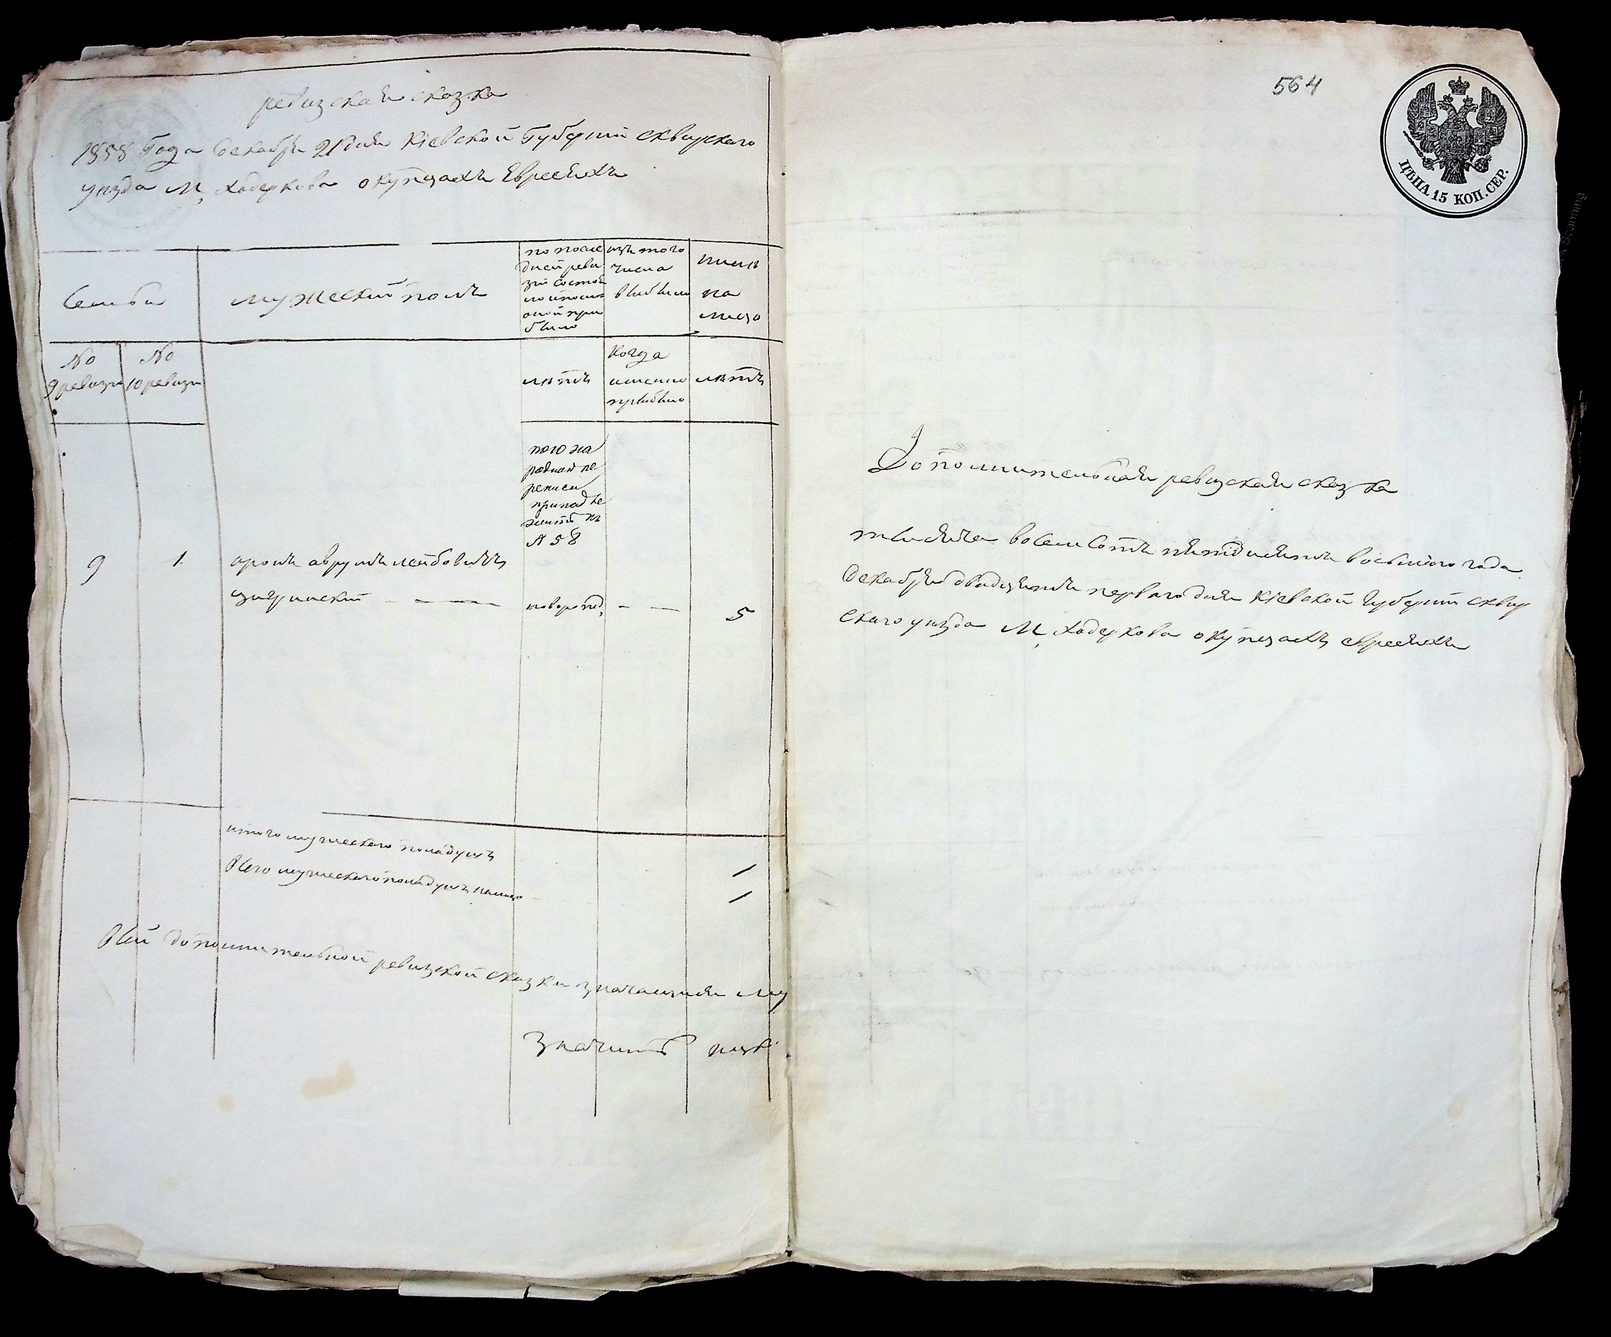 ревизская сказка
1858 Года декабря 21 дня Кіевской Губерніи сквирскаго
уезда М. Ходоркова о купцахъ Евреяхъ
Семьи
мужескій полъ
по после
дней реви
зіи состоя
было
изъ того
числа
выбыло
ныне
на
лицо
No
9 ревизіи
No
10 ревизіи
летъ
Когда
именно
летъ
по на
родной пе
реписи
принадле
житъ къ
N 58
9
1
аронъ аврумъ лейбовичъ
новорожд,
5
итого мужескаго пола душъ
1
Всего мужескаго пола душъ налицо
1
Всей дополнительной ревизской сказки значащіяся му
Значитъ
564
ЦѢНА 15 КОП. СЕР.
Дополнительная ревизская сказка
тысяча восемь сотъ пятдесятъ восьмого года
декабря двадцать перваго дня Кіевской Губерніи сквир
скаго уезда М. Ходоркова о купцахъ евреяхъ